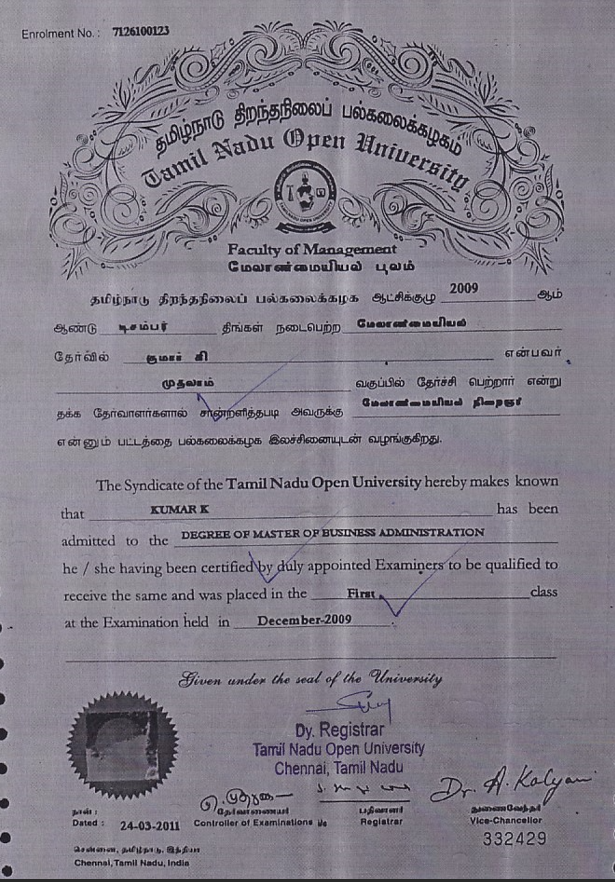 Enrolment No. : 7126100123
தமிழ்நாடு திறந்தநிலைப் பல்கலைக்கழகம்
Tamil Nadu Open University
Faculty of Management
மேலாண்மையியல் புலம்
தமிழ்நாடு திறந்தநிலைப் பல்கலைக்கழக ஆட்சிக்குழு 2009 ஆம்
ஆண்டு டிசம்பர் திங்கள் நடைபெற்ற மேலாண்மையியல்
தேர்வில் குமார் கி என்பவர்
முதலாம் வகுப்பில் தேர்ச்சி பெற்றார் என்று
தக்க தேர்வாளர்களால் சான்றளித்தபடி அவருக்கு மேலாண்மையியல் நிறைஞர்
என்னும் பட்டத்தை பல்கலைக்கழக இலச்சினையுடன் வழங்குகிறது.
The Syndicate of the Tamil Nadu Open University hereby makes known
that KUMAR K has been
admitted to the DEGREE OF MASTER OF BUSINESS ADMINISTRATION
he / she having been certified by duly appointed Examiners to be qualified to
receive the same and was placed in the First class
at the Examination held in December-2009
Given under the seal of the University
Dy. Registrar
Tamil Nadu Open University
Chennai, Tamil Nadu
Dr. A. Kalyani
நாள் : தேர்வாணையர் பதிவாளர் துணைவேந்தர்
Dated : 24-03-2011 Controller of Examinations i/c Registrar Vice-Chancellor
332429
சென்னை, தமிழ்நாடு, இந்தியா
Chennai, Tamil Nadu, India